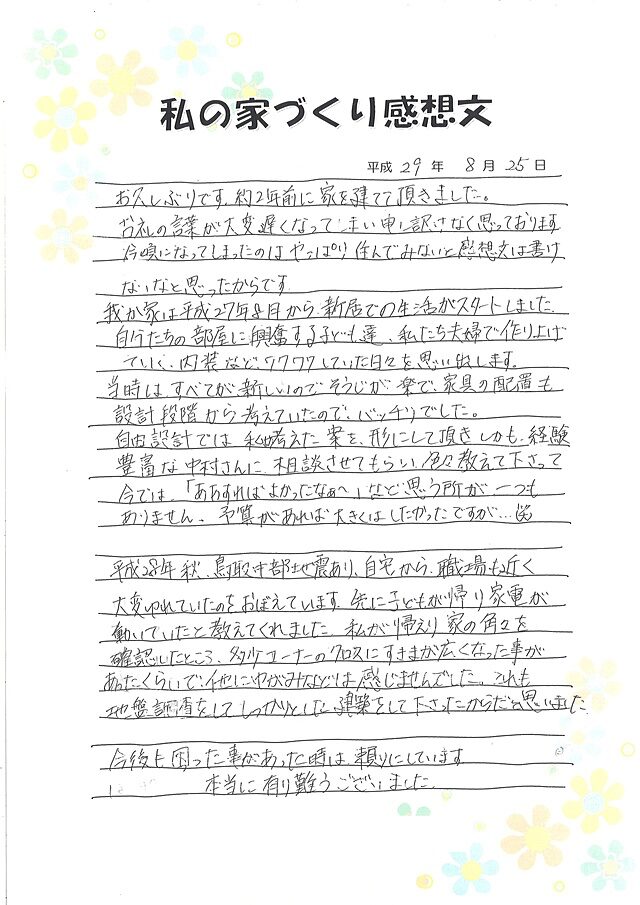 私の家づくり感想文
平成 29 年 8 月 25 日
お久しぶりです。約2年前に家を建てて頂きました。
お礼の言葉が大変遅くなってしまい申し訳なく思っております
今頃になってしまったのはやっぱり住んでみないと感想文は書け
ないなと思ったからです。
我が家は平成27年8月から新居での生活がスタートしました。
自分たちの部屋に興奮する子ども達、私たち夫婦で作り上げ
ていく、内装など、ワクワクしていた日々を思い出します。
当時はすべてが新しいのでそうじが楽で、家具の配置も
設計段階から考えていたので、バッチリでした。
自由設計では私が考えた案を、形にして頂きしかも、経験
豊富な中村さんに、相談させてもらい、色々教えて下さって
今では、「ああすればよかったなあ〜」など思う所が一つも
ありません。予算があれば大きくはしたかったですが…(笑)
平成28年秋、鳥取中部地震あり、自宅から、職場も近く
大変ゆれていたのをおぼえています。先に子どもが帰り家電が
動いていたと教えてくれました。私が帰えり家の角々を
確認したところ、多少コーナーのクロスにすきまが広くなった事が
あったくらいで、他にゆがみなどは感じませんでした。これも
地盤調査をしてしっかりとした建築をして下さったからだと思いました。
今後も困った事があった時は、頼りにしています。
本当に有り難うございました。